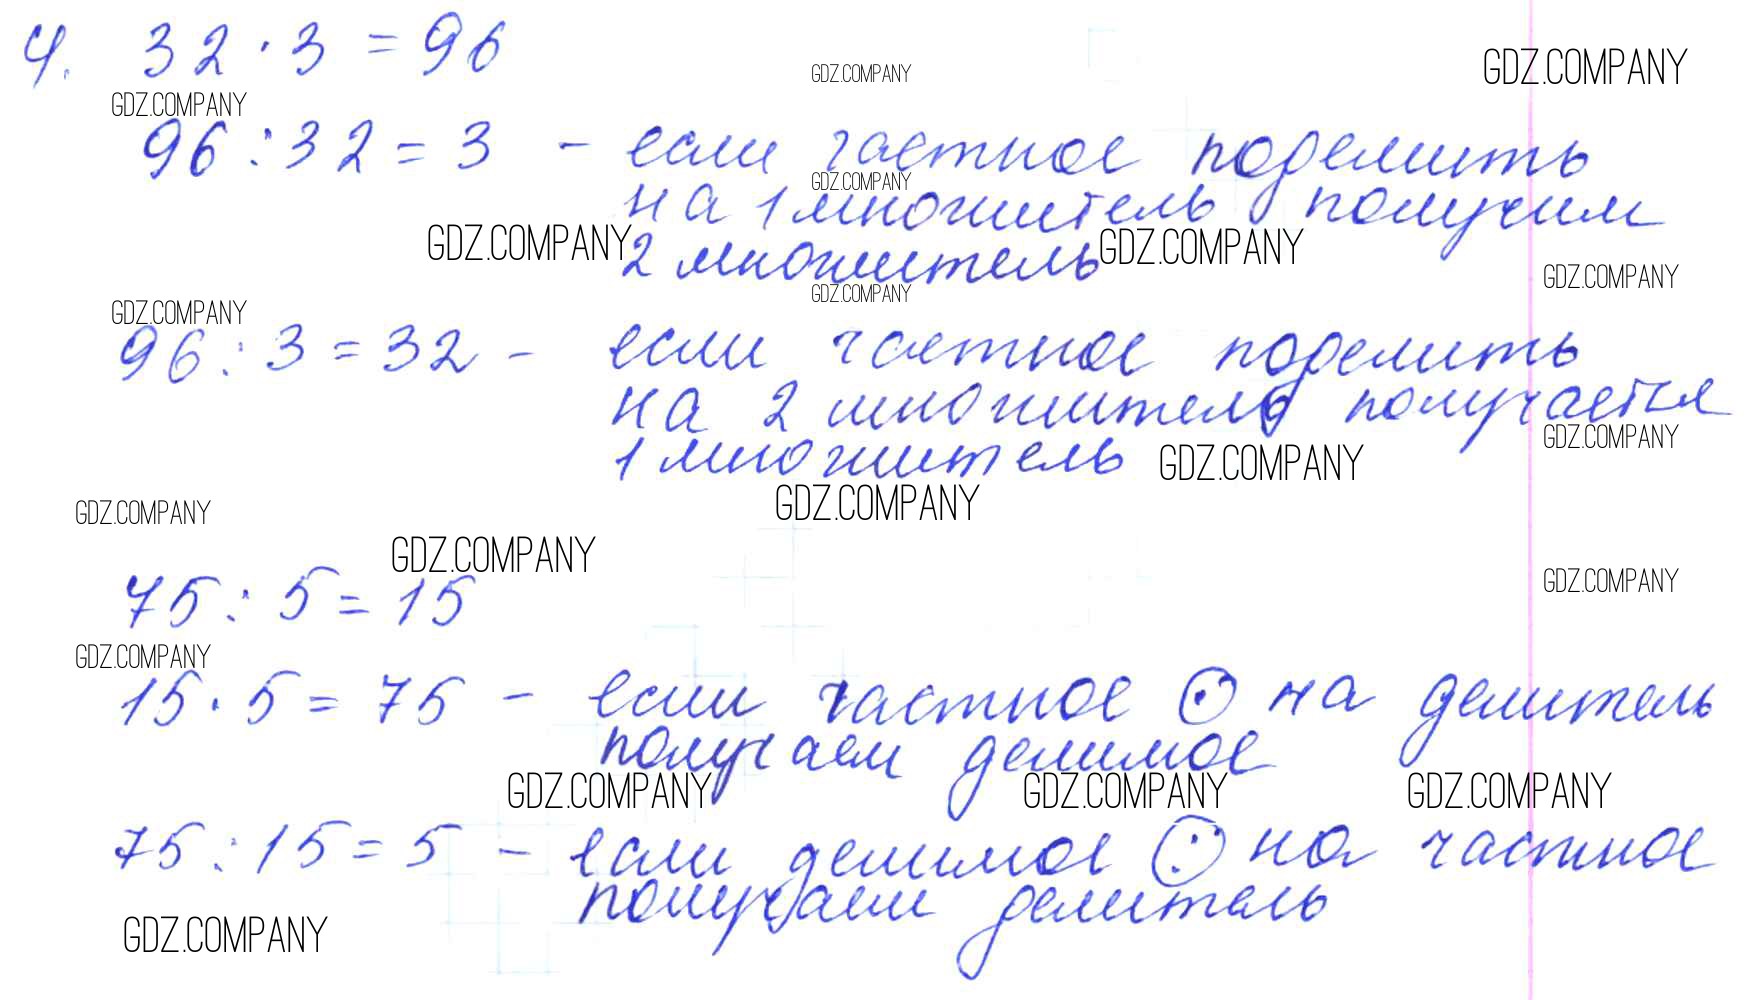 4. 32 · 3 = 96
GDZ.COMPANY
GDZ.COMPANY
GDZ.COMPANY
96 : 32 = 3 - если частное поделить
GDZ.COMPANY
на 1 множитель получим
GDZ.COMPANY 2 множитель GDZ.COMPANY
GDZ.COMPANY
GDZ.COMPANY
GDZ.COMPANY
96 : 3 = 32 - если частное поделить
на 2 множитель получается
GDZ.COMPANY
1 множитель GDZ.COMPANY
GDZ.COMPANY
GDZ.COMPANY
GDZ.COMPANY
GDZ.COMPANY
75 : 5 = 15
GDZ.COMPANY
15 · 5 = 75 - если частное · на делитель
получаем делимое
GDZ.COMPANY GDZ.COMPANY GDZ.COMPANY
75 : 15 = 5 - если делимое : на частное
получаем делитель
GDZ.COMPANY